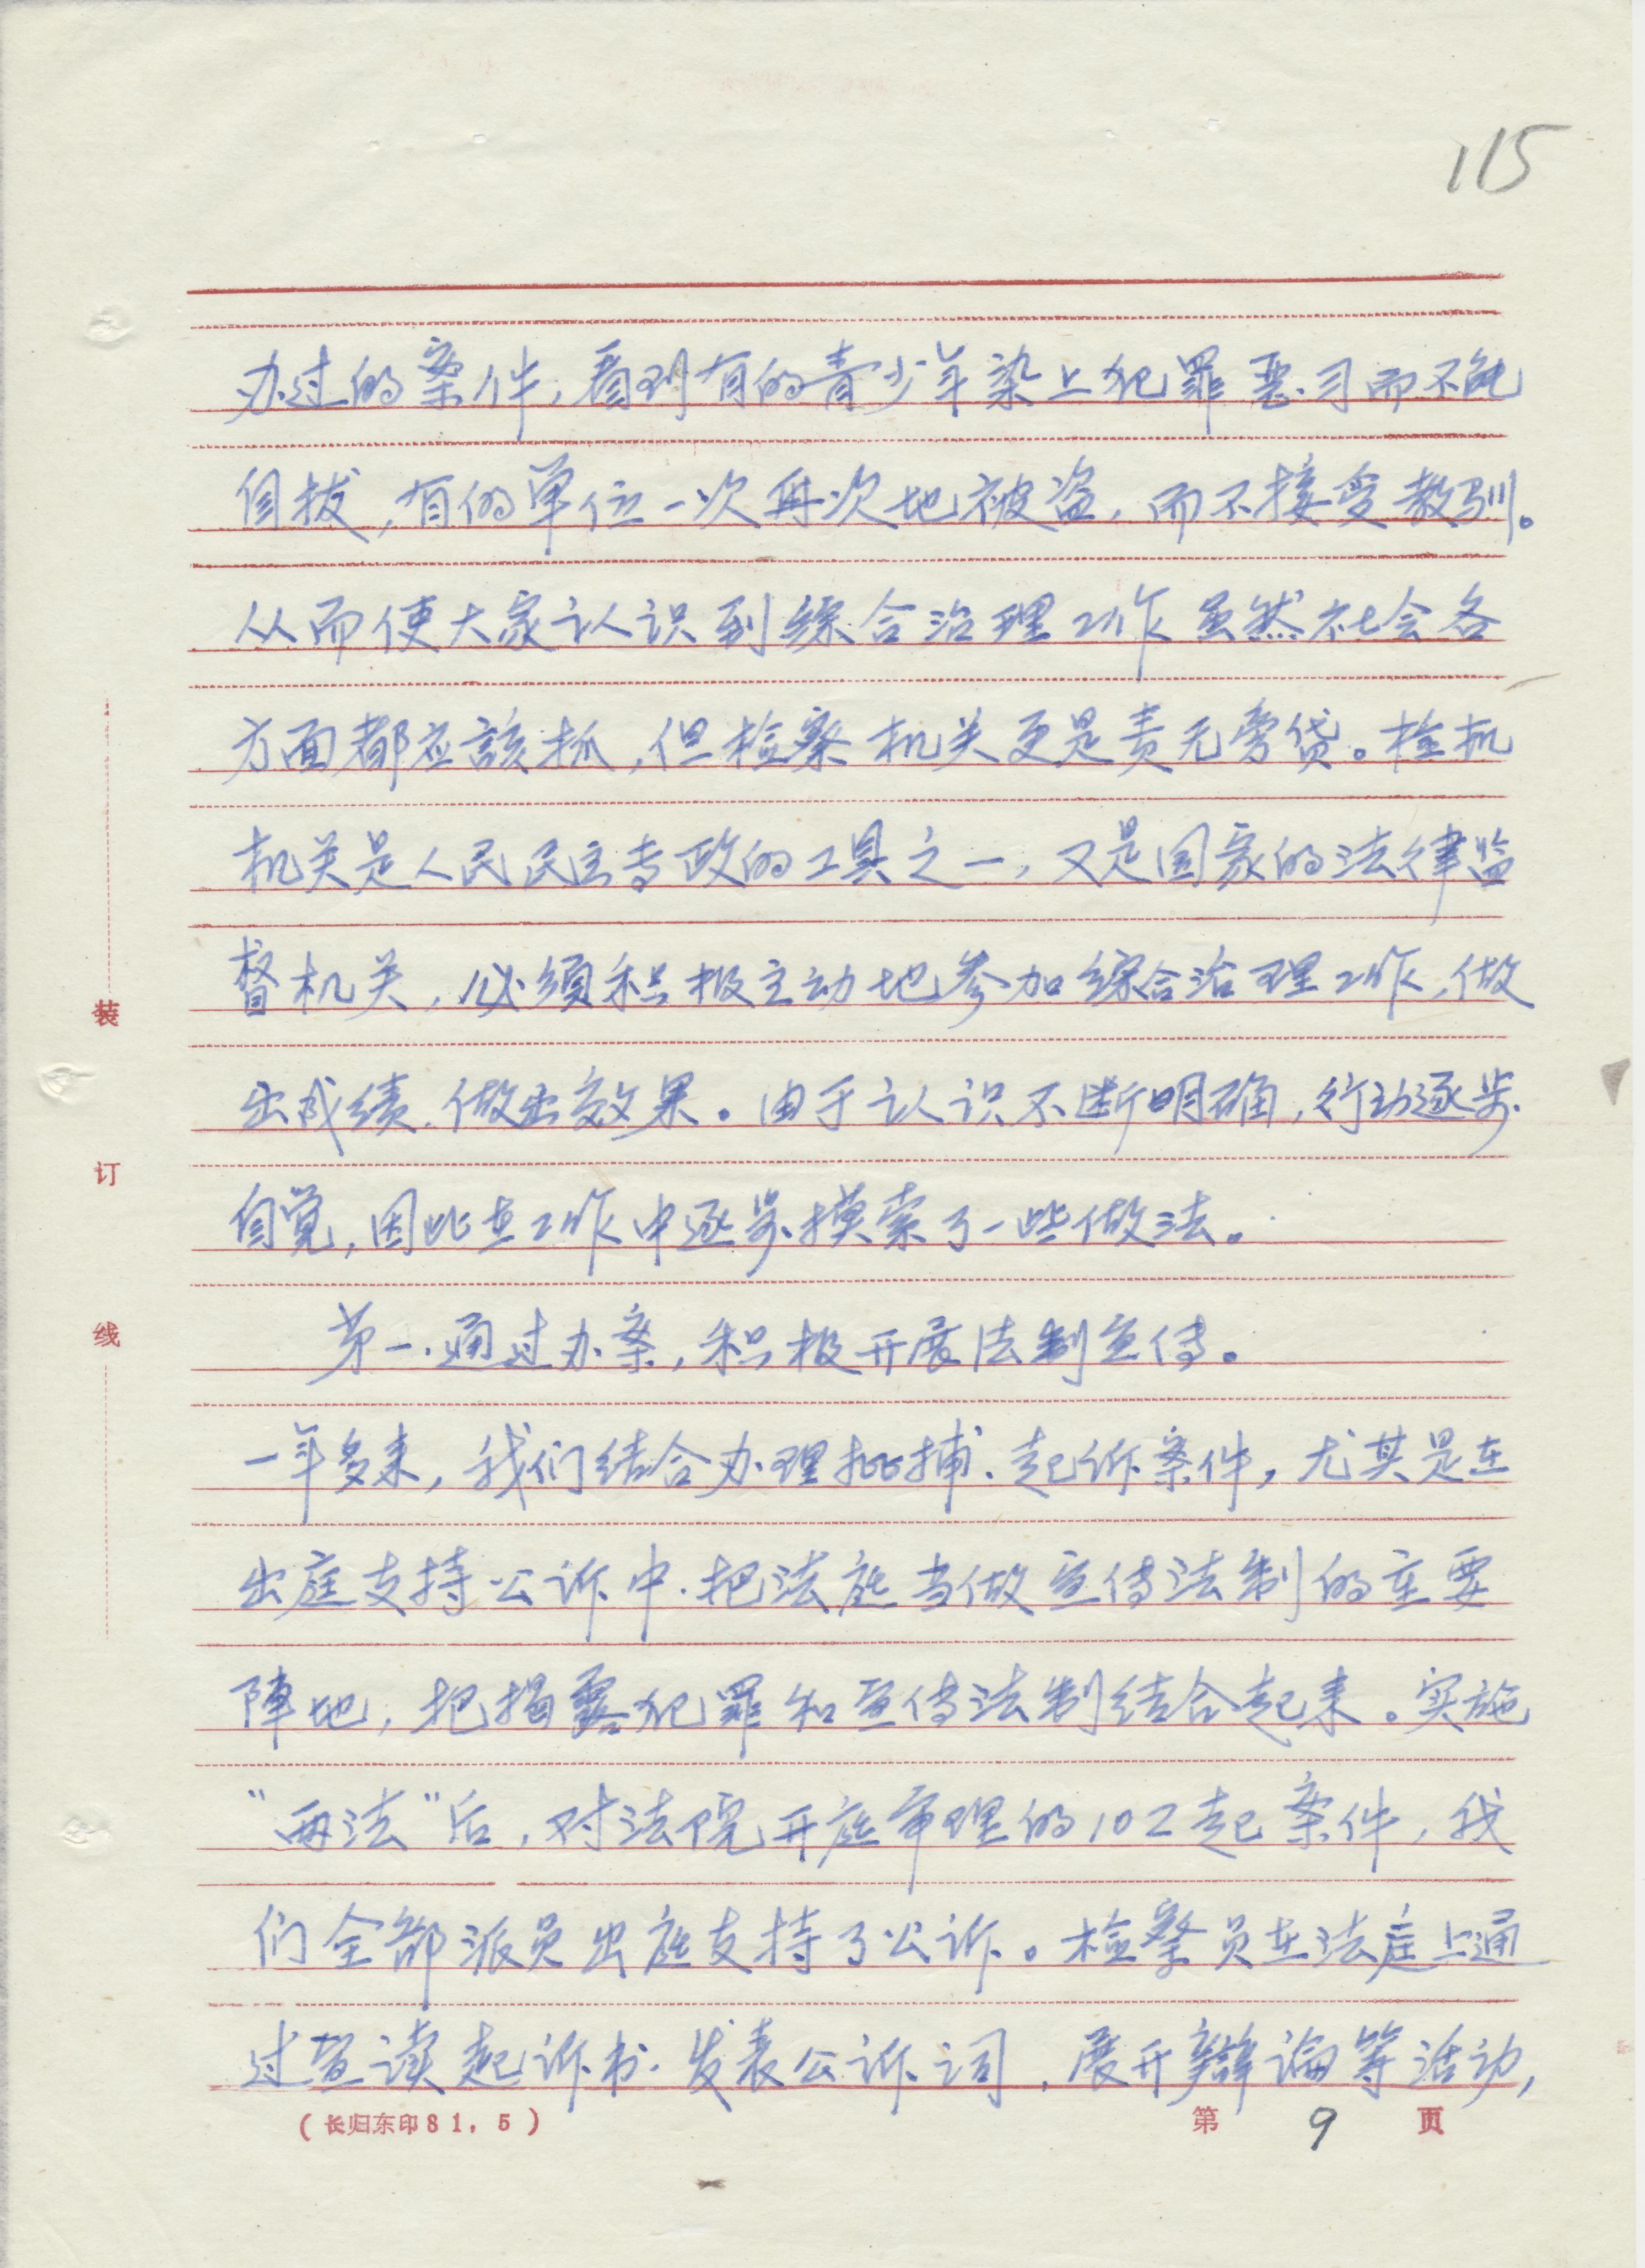 115
办过的案件，看到有的青少年染上犯罪恶习而不能
自拔，有的单位一次再次地被盗，而不接受教驯。
从而使大家认识到综合治理工作虽然社会各
方面都应該抓，但检察机关更是责无旁贷。检机
机关是人民民主专政的工具之一，又是国家的法律监
督机关，必须积极主动地参加综合治理工作，做
出成绩、做出效果。由于认识不断明确，行动逐步
自觉，因此在工作中逐步摸索了一些做法。
第一、通过办案，积极开展法制宣传。
一年多来，我们结合办理批捕、起诉案件，尤其是在
出庭支持公诉中、把法庭当做宣传法制的重要
陣地，把揭露犯罪和宣传法制结合起来。实施
“两法”后，对法院开庭审理的102起案件，我
们全部派员出庭支持了公诉。检察员在法庭上通
过宣读起诉书、发表公诉词，展开辯论等活动，
装
订
线
(长归东印81.5)
第 9 页